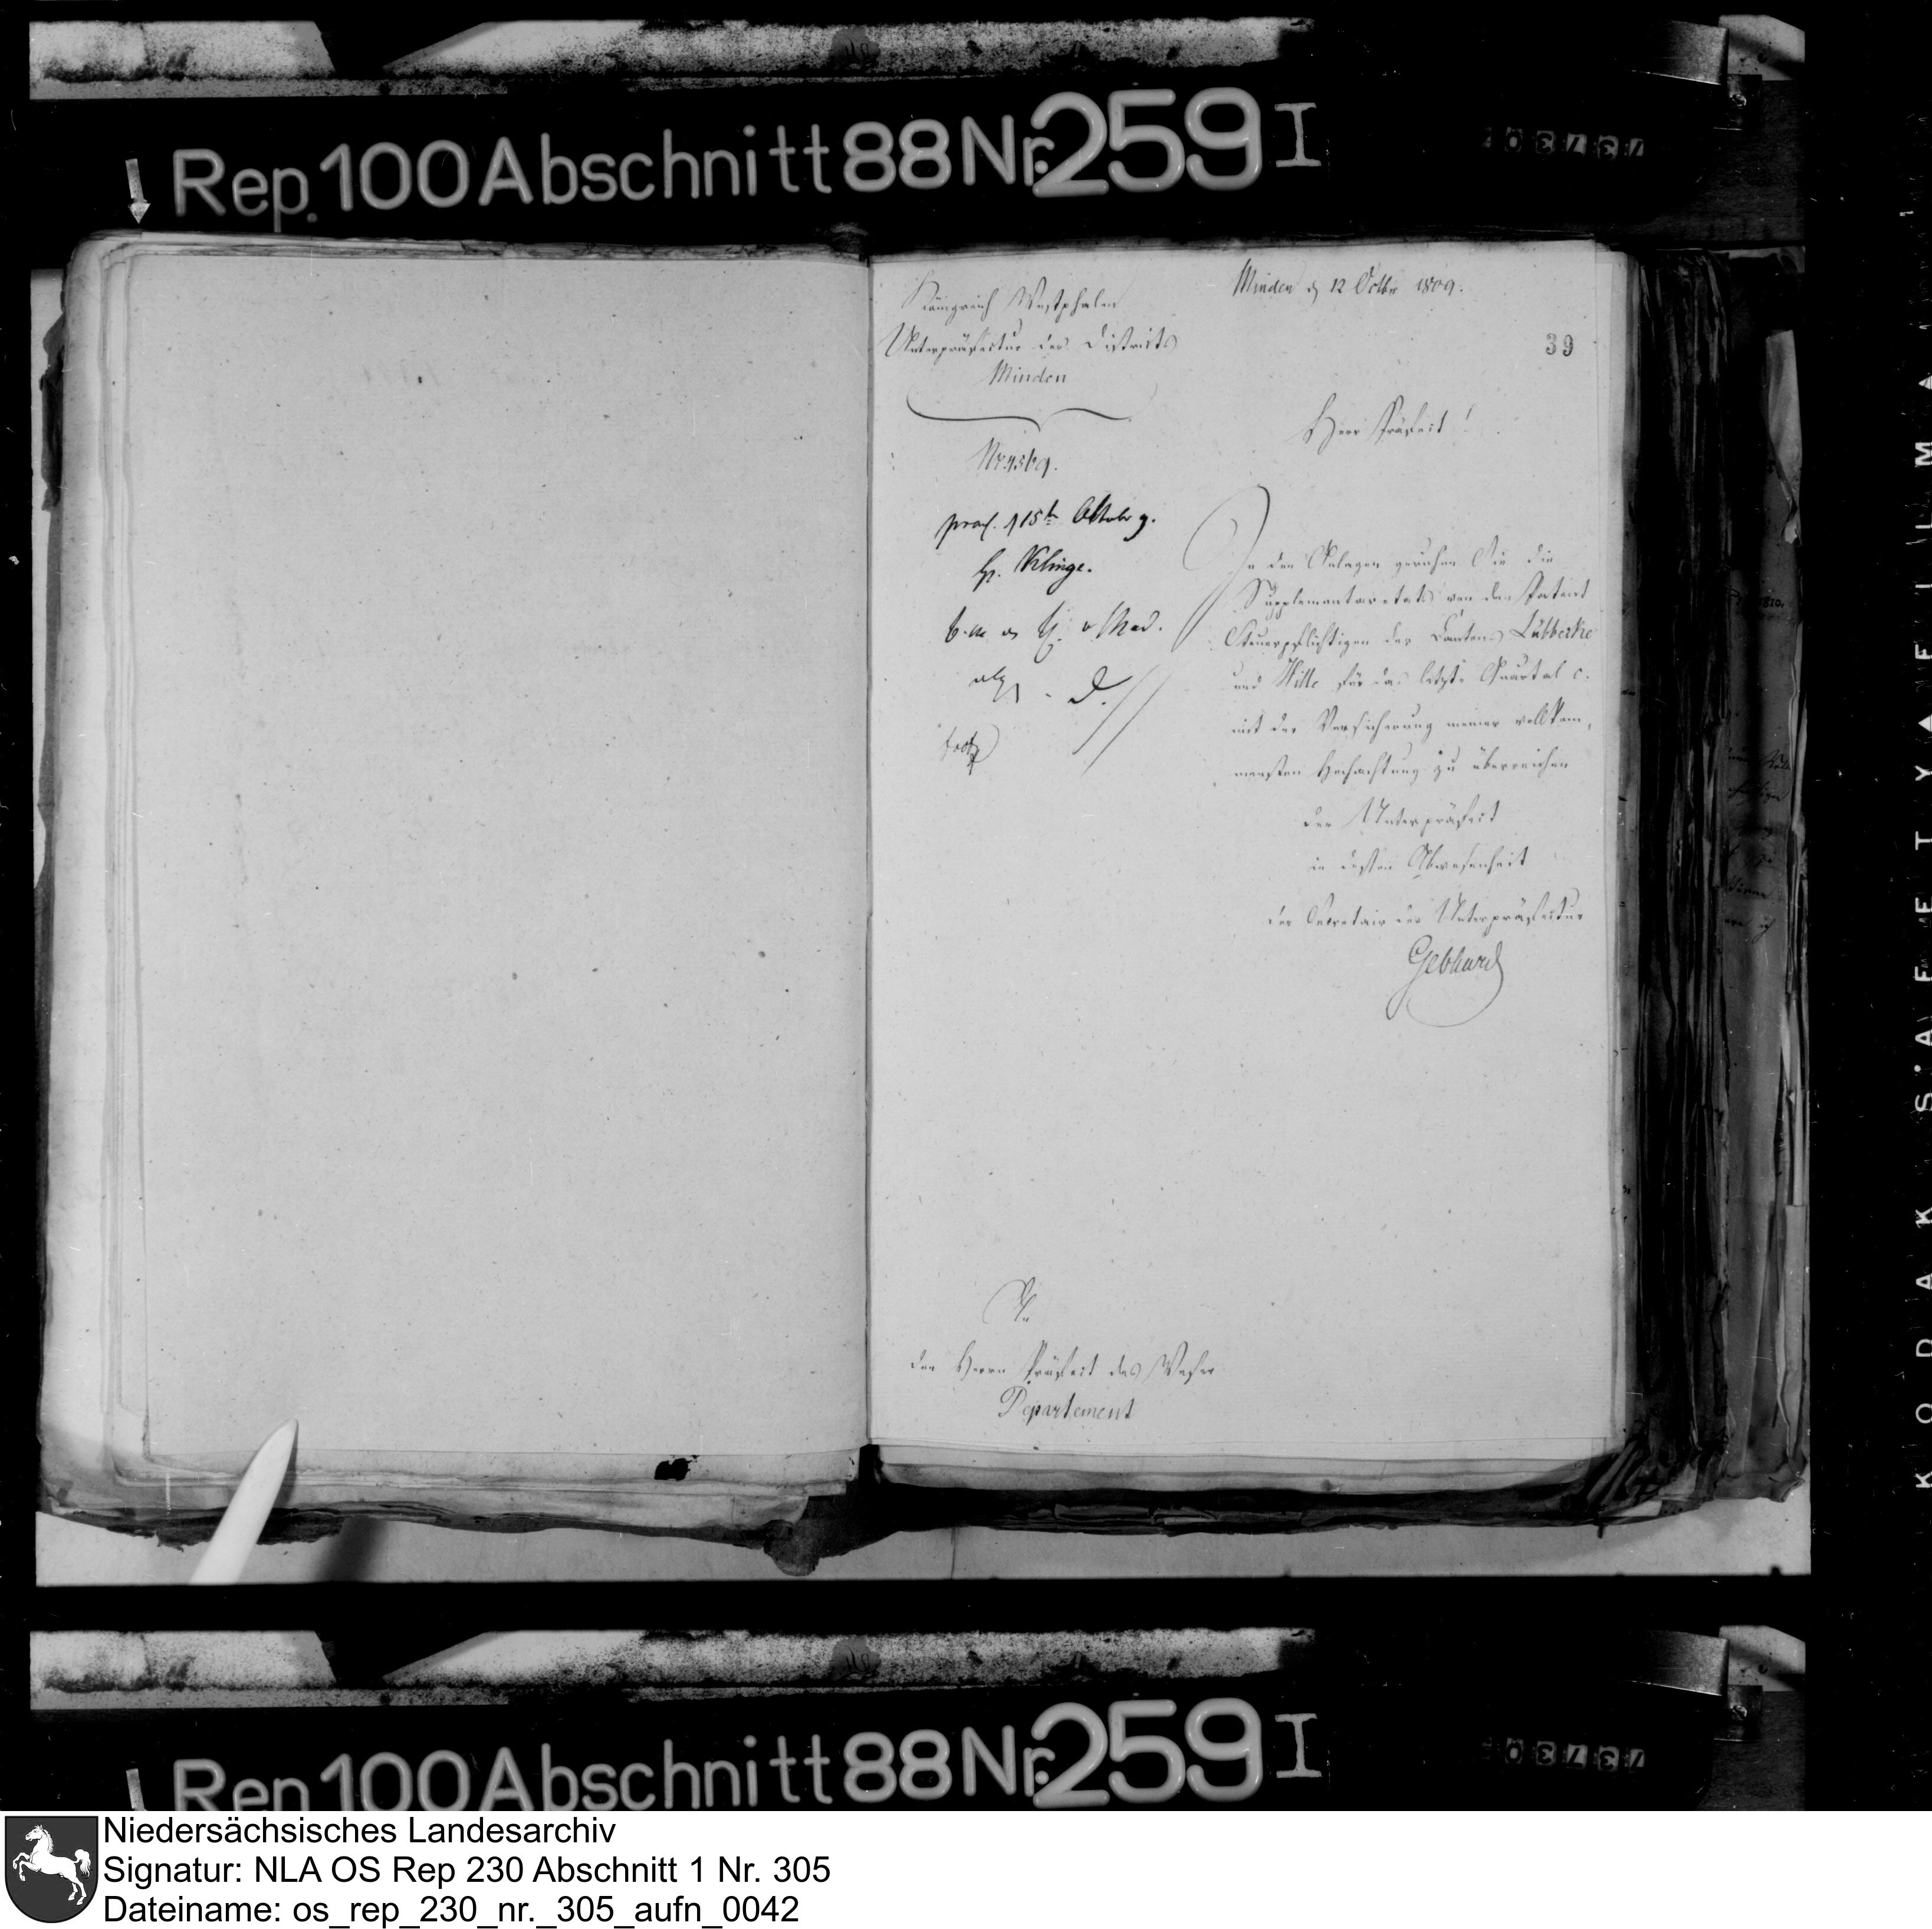 Rep. 100 Abschnitt 88 Nr. 259 I
Königreich Westphalen
Unterpräfectur des Districts
Minden
Minden d 12 Octbr 1809.
39
Herr Präfect!
praes. d 15t Octob 9.
H. Klinge.
In den Anlagen geruhen Sie die
Supplementar etats von den Patent
Steuerpflichtigen der Cantons Lübbecke
und Hille für das letzte Quartal c.
mit der Versicherung meiner vollkom,
mensten Hochachtung zu überreichen
der Unterpräfect
in dessen Abwesenheit
der Secretair der Unterpräfectur
Gebhard
An
den Herrn Präfect des Weser
Departement
KODAK SAFETY FILM
Rep. 100 Abschnitt 88 Nr. 259 I
Niedersächsisches Landesarchiv
Signatur: NLA OS Rep 230 Abschnitt 1 Nr. 305
Dateiname: os_rep_230_nr._305_aufn_0042